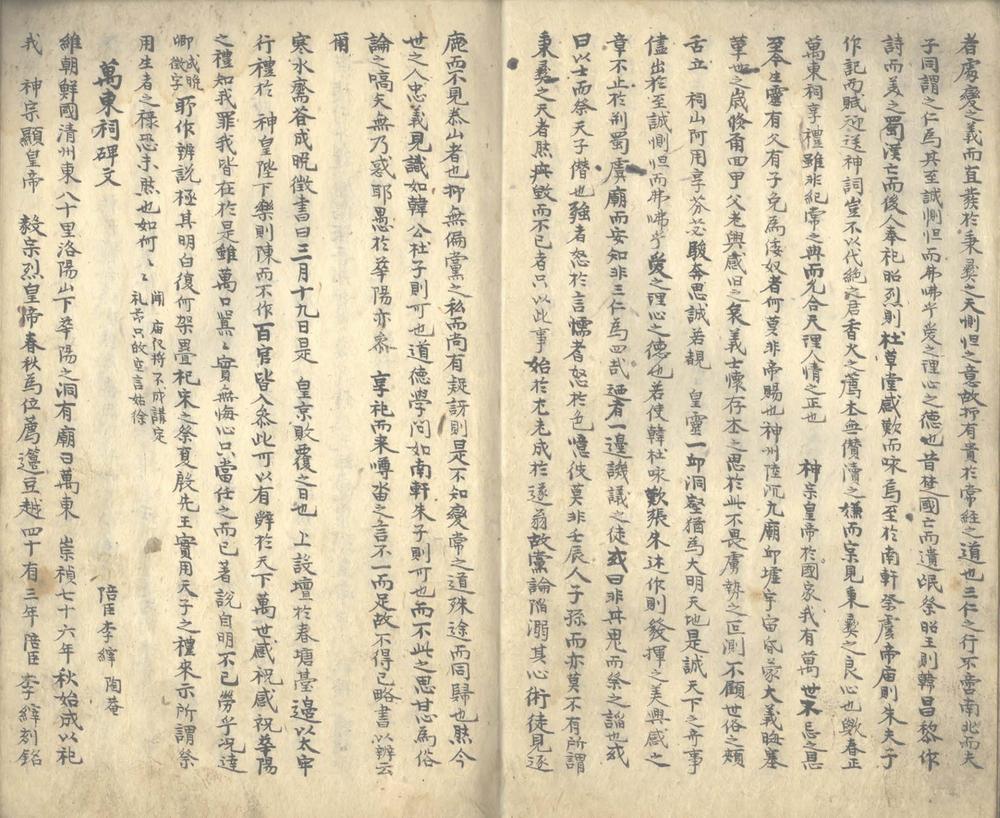 者處變之義而直發於秉彛之天惻怛之意故抑有貴於常經之道也三仁之行不啻南北而夫
子同謂之仁爲其至誠惻怛而不咈乎愛之理心之德也昔楚國亡而遺氓祭昭王則韓昌黎作
詩而美之蜀漢亡而後人奉祀昭烈則杜草堂感歎而咏焉至於南軒祭虞帝廟則朱夫子
作記而賦迎送神詞豈不以代絶之君香火之薦本無僭瀆之嫌而宗見秉彛之良心也歟春正
萬東祠享禮雖非紀常之典而允合天理人情之正也　神宗皇帝於國家我有萬世不忘之恩
至今生靈有父有子免爲倭奴者何莫非帝賜也神州陸沉九廟邱墟宇宙家蒙大義晦塞
草世之歲倏甭四甲父老興感旧之哀義士懷存本之思於此不畏虜辨之叵測不顧世俗之頰
舌立　祠山阿用享芬苾駿奔思誠若覩　皇靈一邱洞壑猶爲大明天地是誠天下之奇事
儘出於至誠惻怛而不咈乎愛之理心之德也若使韓杜咏歎張朱述作則發揮之美興感之
章不止於荊蜀虞廟而安知非三仁爲四哉廼有一邊譏議之徒或曰非其鬼而祭之謟也或
曰以士而祭天子僭也強者怒於言懦者怒於色噫彼莫非壬辰人子孫而亦莫不有所謂
秉彛之天者胅與毀而不已者只以此事始於尤老成於遂翁故黨論陷溺其心術徒見逐
鹿而不見泰山者也抑無偏黨之私而尚有疑訪則是不知變常之道殊途而同歸也然今
世之人忠義見識如韓公杜子則可也道德學问如南軒朱子則可也而不此之思甘心爲俗
論之嗃矢無乃惑耶愚於華陽亦忝　享礼而来噂沓之言不一而足故不得已略書以辨云
爾
寒水齋答成晩徵書曰三月十九日是　皇京敗覆之日也　上設壇於春塘臺邊以太牢
行禮於　神皇陛下樂則陳而不作百官皆入叅此可以有辞於天下萬世感祝感祝華陽
之禮知我罪我皆在於是雖萬口嘂〻實無悔心只當任之而已著說自明不已勞乎况達
卿成晩徵字所作辨說極其明白復何架疊杞宋之祭夏殷先王實用天子之禮來示所謂祭
用生者之祿恐未然也如何〻〻聞 庙仪將不成講定礼云只的空言姑徐
萬東祠碑文　陪臣李縡陶菴
維朝鮮國清州東八十里洛陽山下華陽之洞有廟曰萬東　崇禎七十六年秋始成以祀
我　神宗顯皇帝　毅宗烈皇帝春秋爲位薦籩豆越四十有三年陪臣李縡刻銘